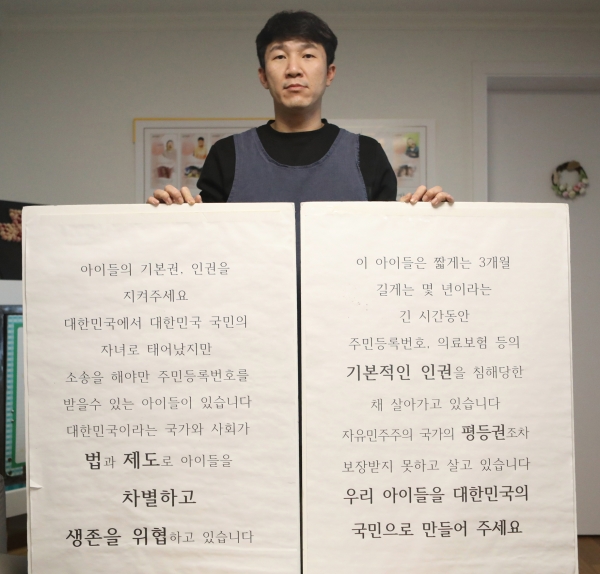 아이들의 기본권, 인권을
지켜주세요
대한민국에서 대한민국 국민의
자녀로 태어났지만
소송을 해야만 주민등록번호를
받을수 있는 아이들이 있습니다
대한민국이라는 국가와 사회가
법과 제도로 아이들을
차별하고
생존을 위협하고 있습니다
이 아이들은 짧게는 3개월
길게는 몇 년이라는
긴 시간동안
주민등록번호, 의료보험 등의
기본적인 인권을 침해당한
채 살아가고 있습니다
자유민주주의 국가의 평등권조차
보장받지 못하고 살고 있습니다
우리 아이들을 대한민국의
국민으로 만들어 주세요